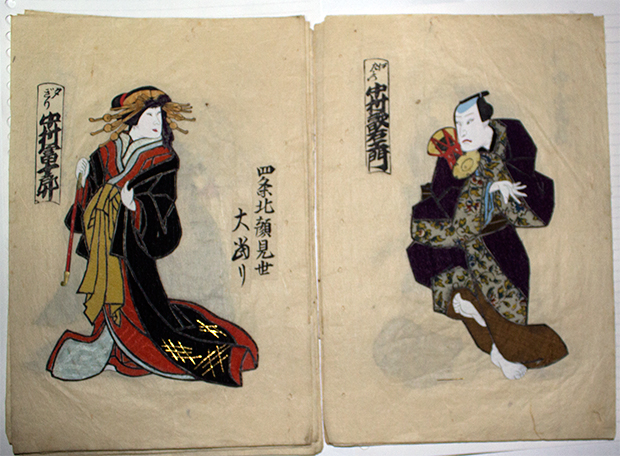 中村歌右衛門
四条北顔見世
大当り
夕ぎり
中村富十郎